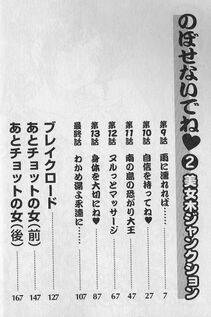 のぼせないでね♥② 美女木ジャンクション
第9話 雨に濡れれば… 7
第10話 自信を持ってね♥ 27
第11話 南の島の恐がり大王 47
第12話 ヌルっとマッサージ 67
第13話 身体を大切にね♥ 87
最終話 わかめ湯よ永遠に… 107
ブレイクロード 127
あとチョットの女（前） 147
あとチョットの女（後） 167